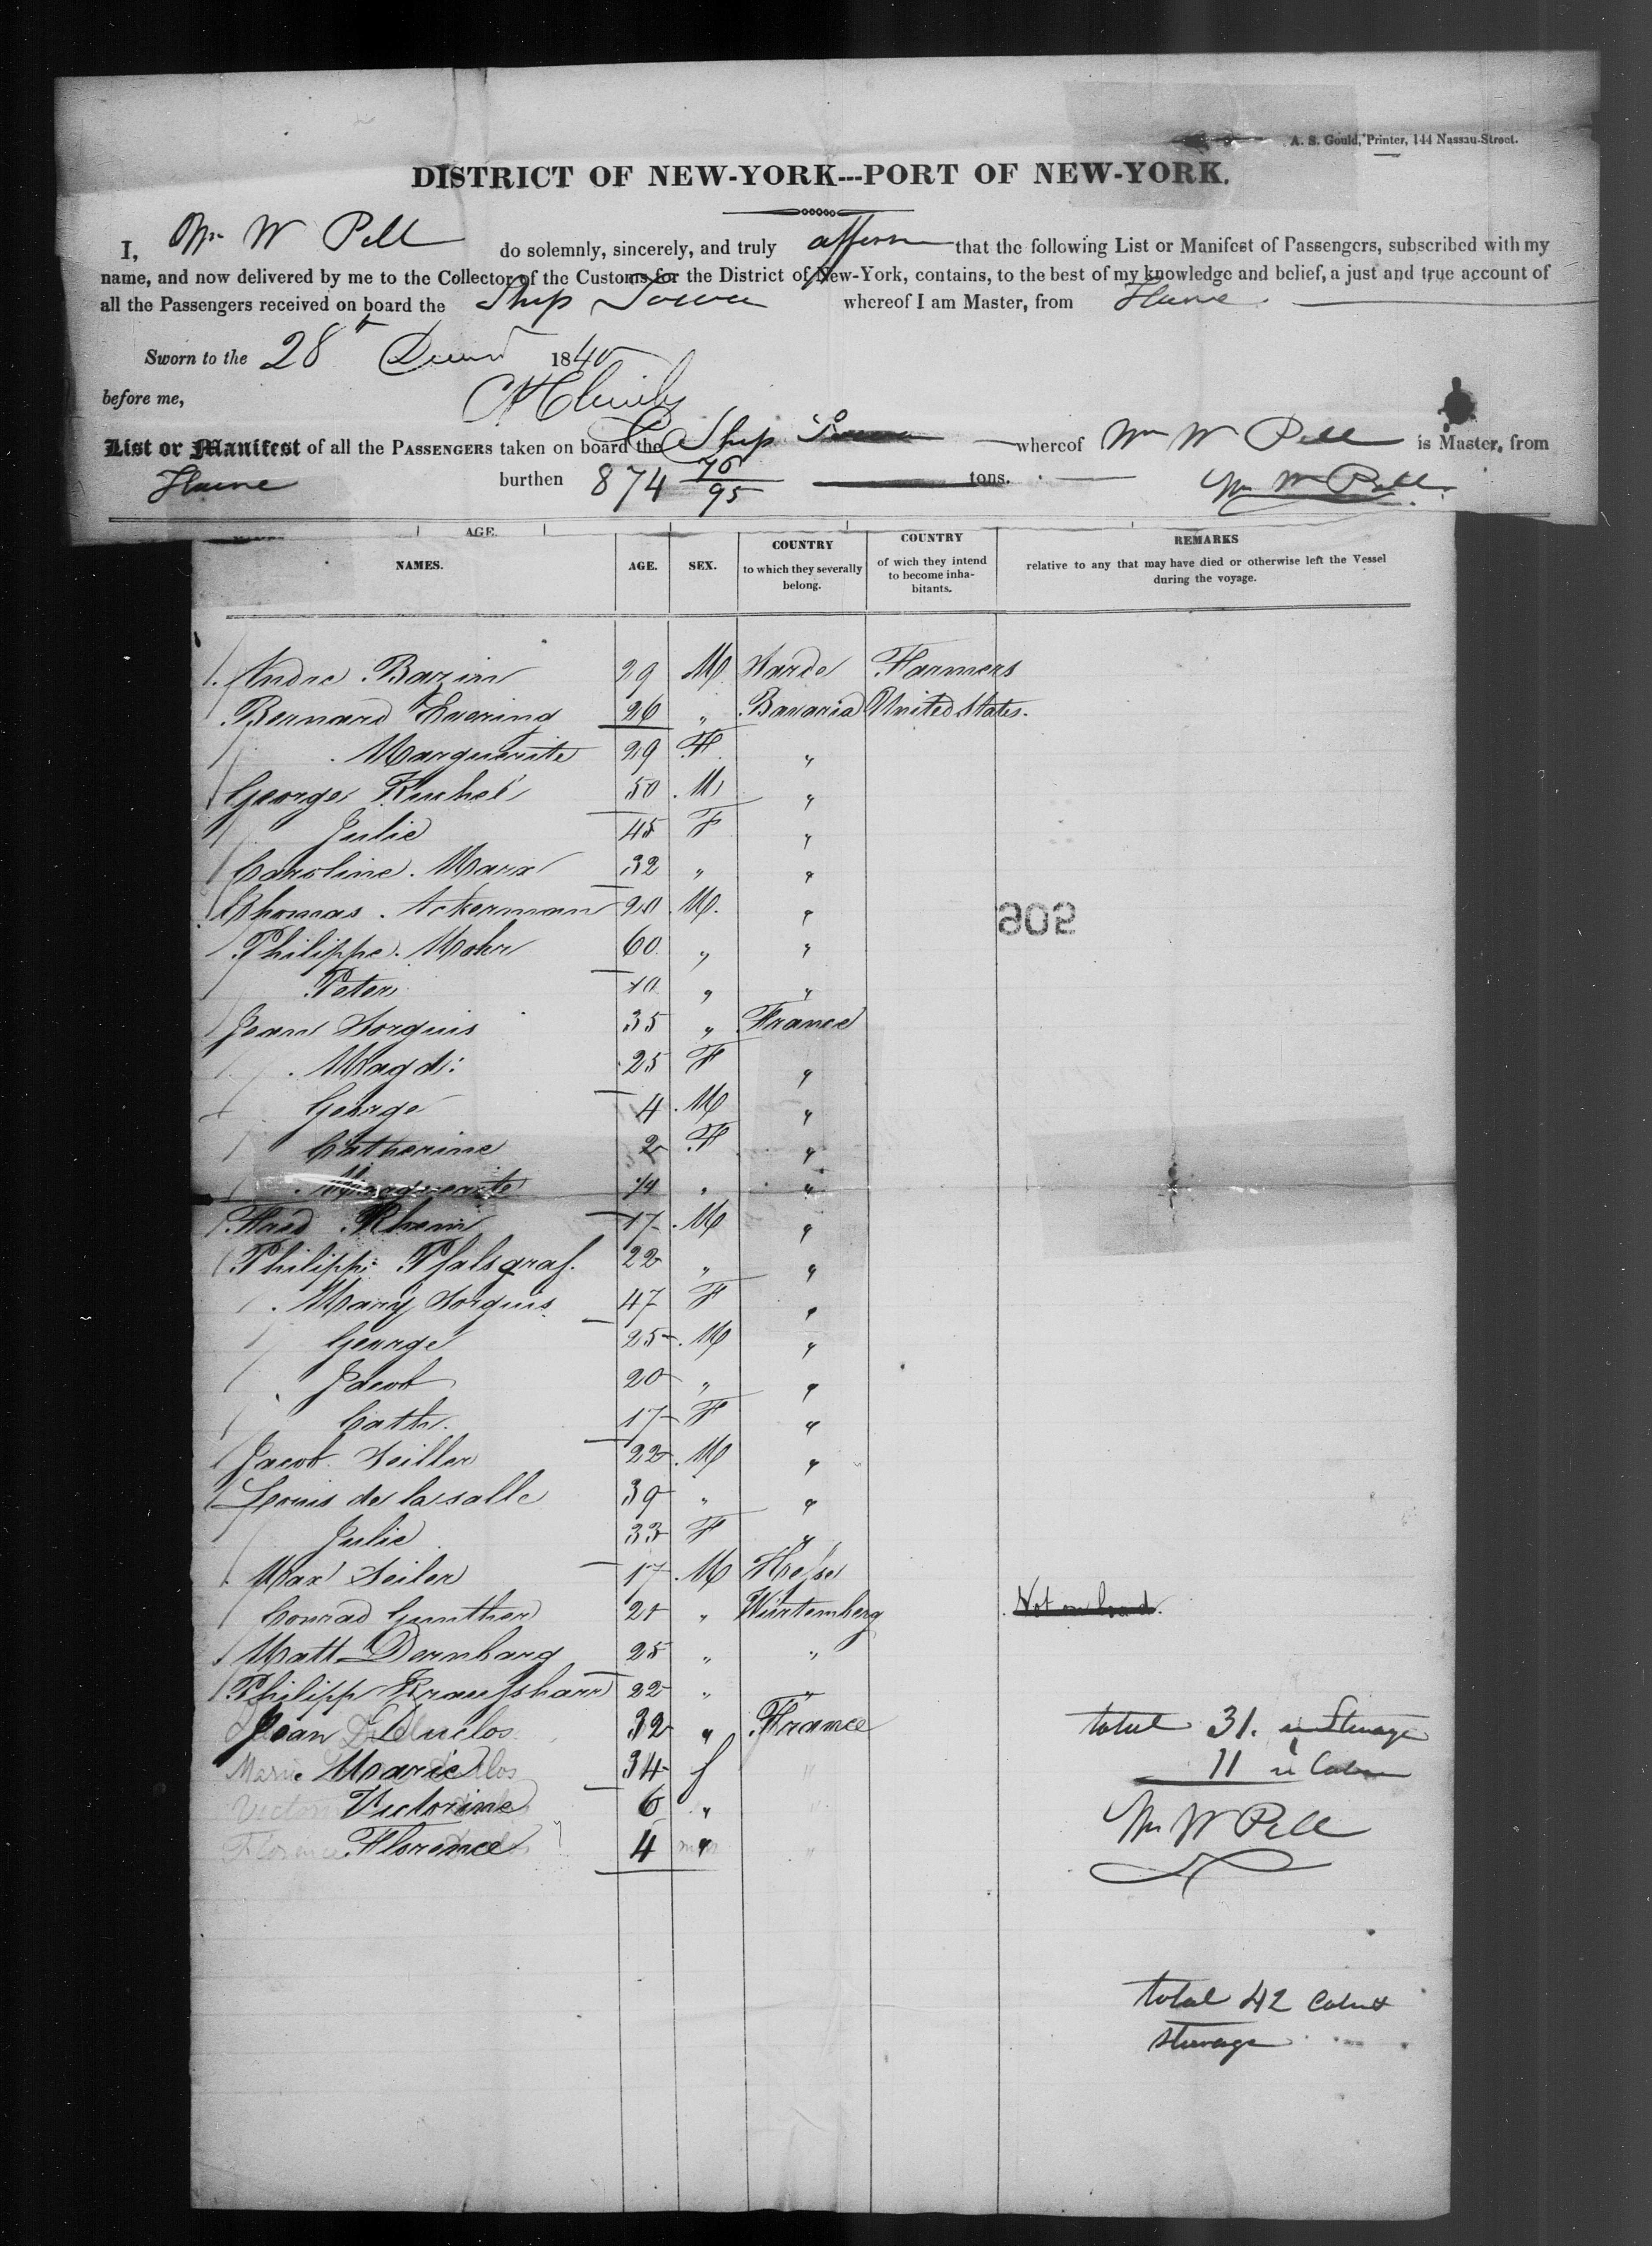 A. S. Gould, Printer, 144 Nassau-Street.
DISTRICT OF NEW-YORK---PORT OF NEW-YORK.
I, Wm W Pell do solemnly, sincerely, and truly affirm that the following List or Manifest of Passengers, subscribed with my
name, and now delivered by me to the Collector of the Customs for the District of New-York, contains, to the best of my knowledge and belief, a just and true account of
all the Passengers received on board the Ship Iowa whereof I am Master, from Havre.
Sworn to the 28th 1840
before me,
List or Manifest of all the PASSENGERS taken on board the Ship Iowa whereof Wm W Pell is Master, from
Havre burthen 874 76/95 tons. Wm W Pell
AGE.
NAMES. AGE. SEX. COUNTRY to which they severally belong. COUNTRY of wich they intend to become inha-bitants. REMARKS relative to any that may have died or otherwise left the Vessel during the voyage.
Andre Bazin 29 M Sarde Farmers
Bernard Evering 26 " Bavaria United States.
Marguerite 29 F "
George Kuchel 50 M "
Julie 45 F "
Caroline Marx 32 " "
Thomas Ackerman 20 M. "
Philippe Mohr 60 " "
Peter 10 " "
Jean Sorguis 35 " France
Magd: 25 F "
George 4 M "
Catherine 2 F "
Marguerite 1/4 " "
Fred Rhein 17 M "
Philipp: Pfalsgraf. 22 " "
Mary Sorguis 47 F "
George 25 M "
Jacob 20 " "
Cath. 17 F "
Jacob Seiller 22 M "
Louis de lasalle 39 " "
Julie 33 F "
Max Seiler 17 M Hesse
Conrad Gunther 21 " Würtemberg Not on board.
Matt Dornbarg 25 " "
Philipp Kraufsharr 22 " "
Jean Duclos 32 " France total 31. in Steerage
Marie 34 f " 11 in Cabin
Victorine 6 " " Wm W Pell
Florence 4 " "
total 42 Cabin &
steerage
505